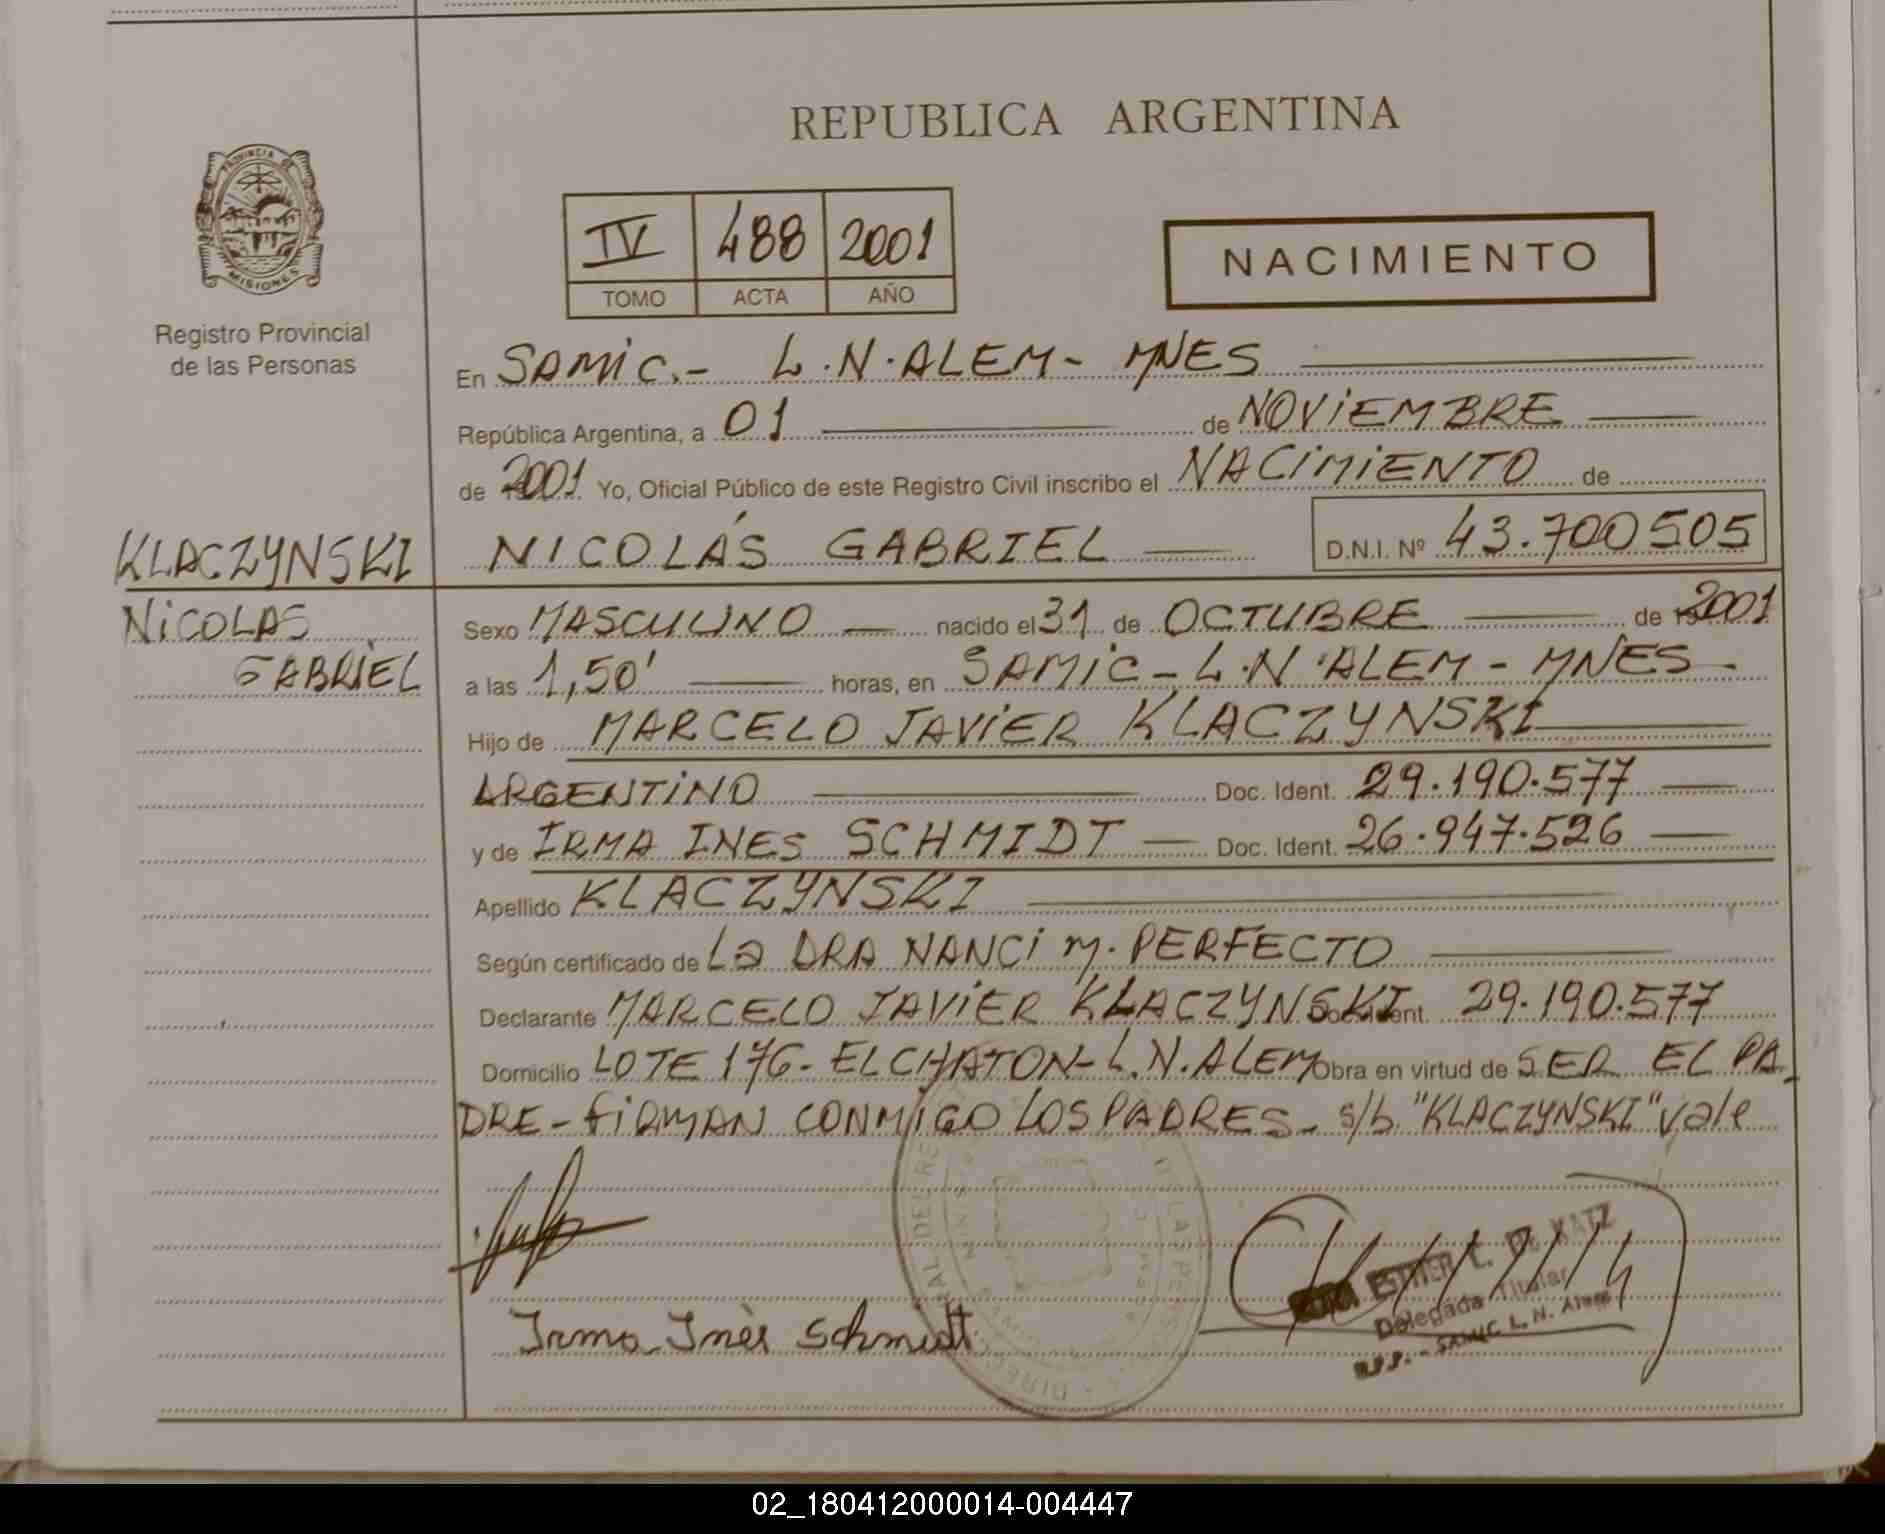 REPUBLICA ARGENTINA
PROVINCIA DE
MISIONES
Registro Provincial
de las Personas
IV 488 2001
TOMO ACTA AÑO
NACIMIENTO
En SAMIC.- L.N.ALEM- MNES
República Argentina, a 01 de NOVIEMBRE
de 2001 Yo, Oficial Público de este Registro Civil inscribo el NACIMIENTO de
KLACZYNSKI NICOLÁS GABRIEL D.N.I. Nº 43.700505
NICOLAS Sexo MASCULINO nacido el 31 de OCTUBRE de 2001
GABRIEL a las 1,50' horas, en SAMIC - L.N.ALEM - MNES -
Hijo de MARCELO JAVIER KLACZYNSKI
ARGENTINO Doc. Ident. 29.190.577
y de IRMA INES SCHMIDT Doc. Ident. 26.947.526
Apellido KLACZYNSKI
Según certificado de La DRA NANCI M. PERFECTO
Declarante MARCELO JAVIER KLACZYNSKI Doc. Ident. 29.190.577
Domicilio LOTE 176- EL CHATON- L.N.ALEM Obra en virtud de SER EL PA-
DRE - FIRMAN CONMIGO LOS PADRES - s/b "KLACZYNSKI" vale
Irma Inès Schmidt
ESTHER L. DE KATZ
Delegada Titular
R.P.P. - SAMIC L. N. Alem
02_180412000014-004447